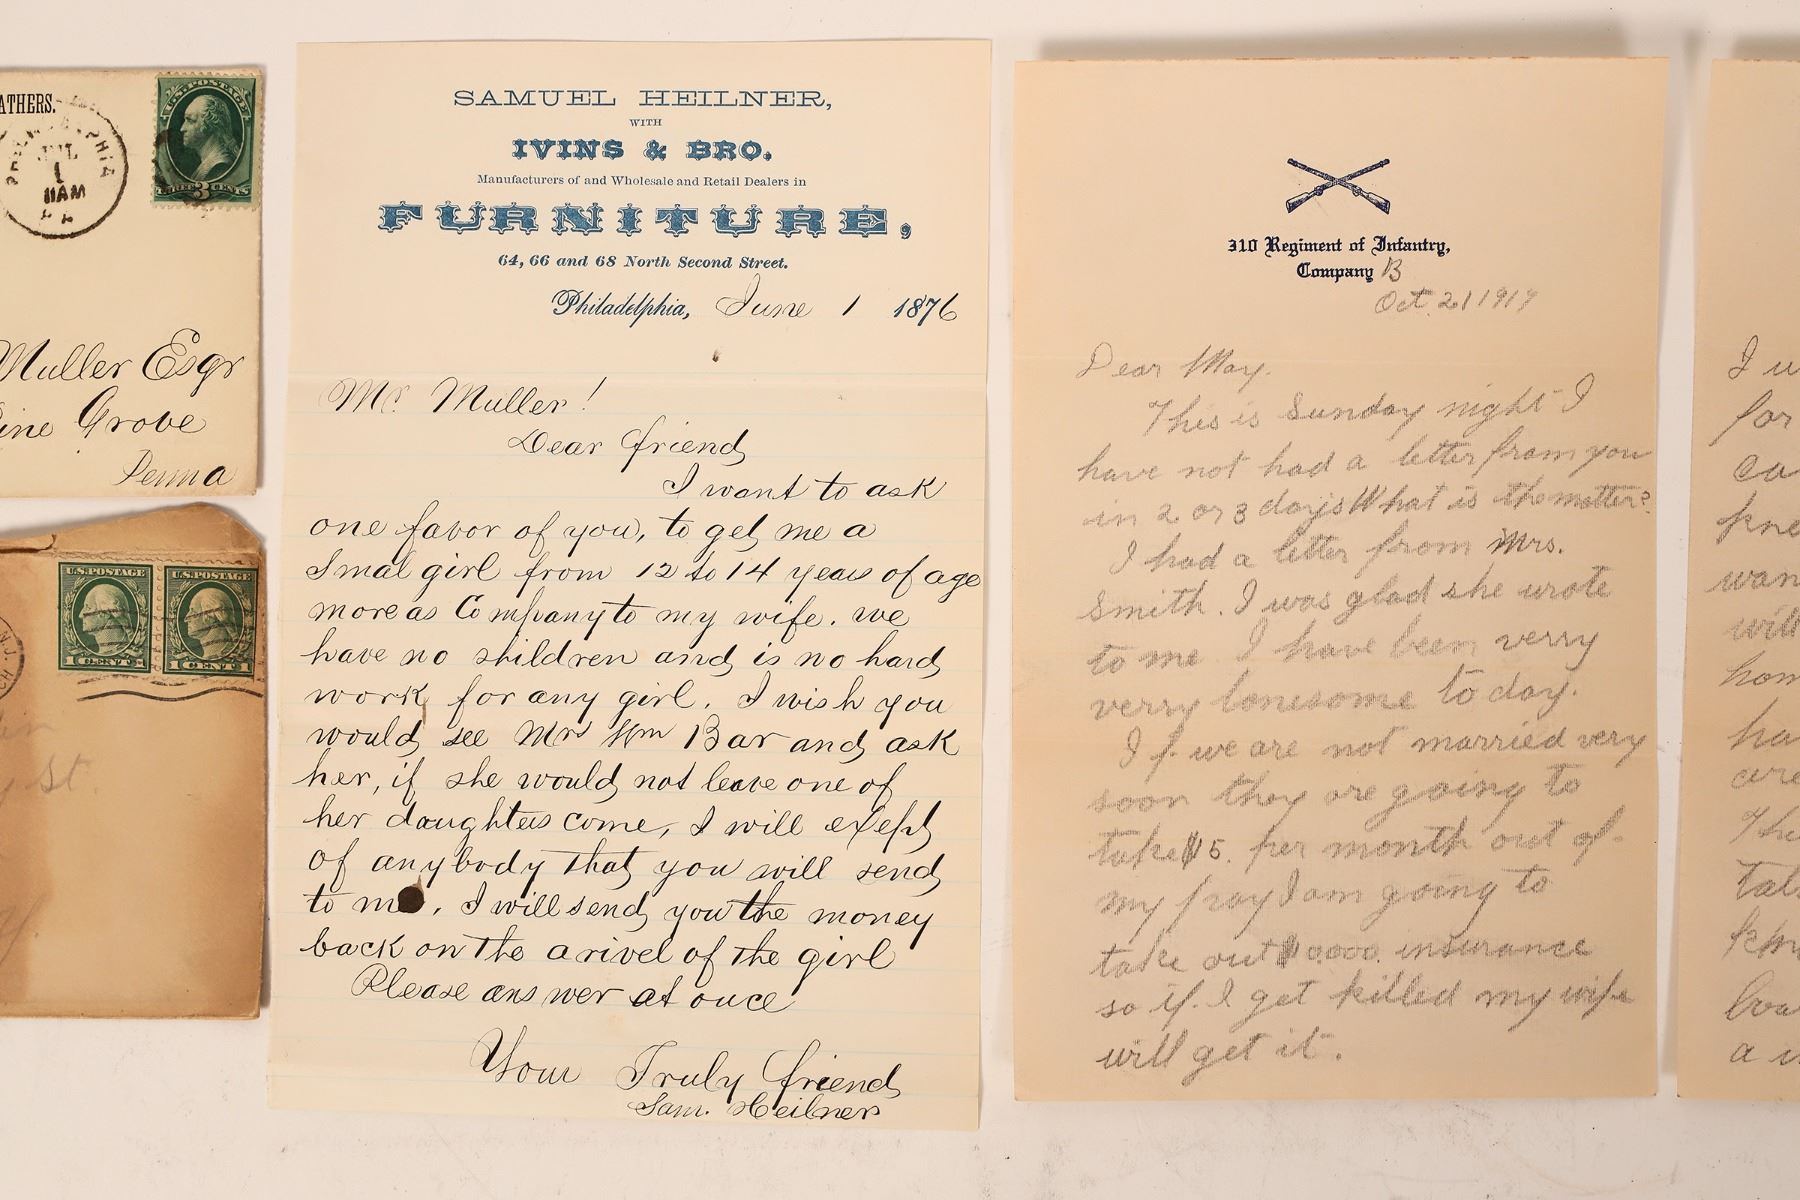 ATHERS.
PHILADELPHIA
JUL
1
11AM
U.S. POSTAGE
THREE 3 CENTS
Muller Esqr
ine Grove
Penna
U.S.POSTAGE
1 CENT 1
U.S.POSTAGE
1 CENT 1
N.J.
St.
SAMUEL HEILNER,
WITH
IVINS & BRO.
Manufacturers of and Wholesale and Retail Dealers in
FURNITURE,
64, 66 and 68 North Second Street.
Philadelphia, June 1 1876
Mr. Muller!
Dear friend
I want to ask
one favor of you, to get me a
Smal girl from 12 to 14 years of age
more as Company to my wife. we
have no shildren and is no hard
work for any girl. I wish you
would see Mrs Wm Bar and ask
her, if she would not leave one of
her daughters come, I will exsept
of anybody that you will send
to me, I will send you the money
back on the arivel of the girl
Please answer at once
Your Truly friend
Sam. Heilner
310 Regiment of Infantry,
Company B
Oct. 21 1917
Dear May.
This is Sunday night I
have not had a letter from you
in 2 or 3 days What is the matter?
I had a letter from Mrs.
Smith. I was glad she wrote
to me I have been verry
verry lonesome to day.
If we are not married very
soon they are going to
take $5. per month out of
my pay I am going to
take out $10.000. insurance
so if I get killed my wife
will get it.
I
for
ca
kne
wan
will
hom
ha
are
The
a